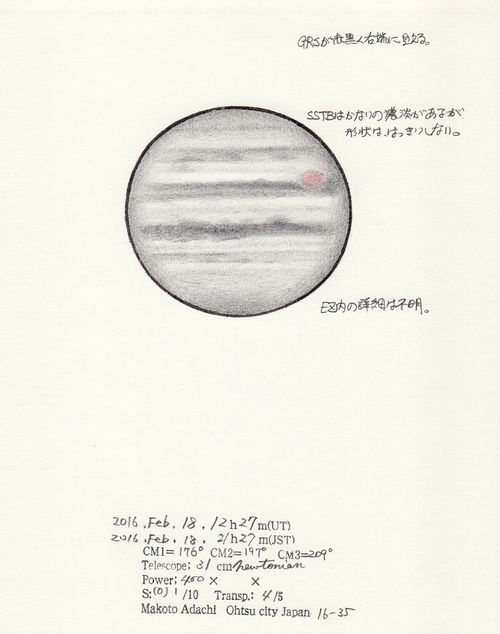 GRSが暗黒く右端に見える。
SSTBはかなりの濃淡があるが
形状は、はっきりしない。
EZ内の詳細は不明。
2016. Feb. 18. 12h27m(UT)
2016. Feb. 18. 21h27m(JST)
CM1=176° CM2=197° CM3=209°
Telescope; 31 cm Newtonian
Power; 400 × ×
S: 1/10 Transp.: 4/5
Makoto Adachi Ohtsu city Japan 16-35